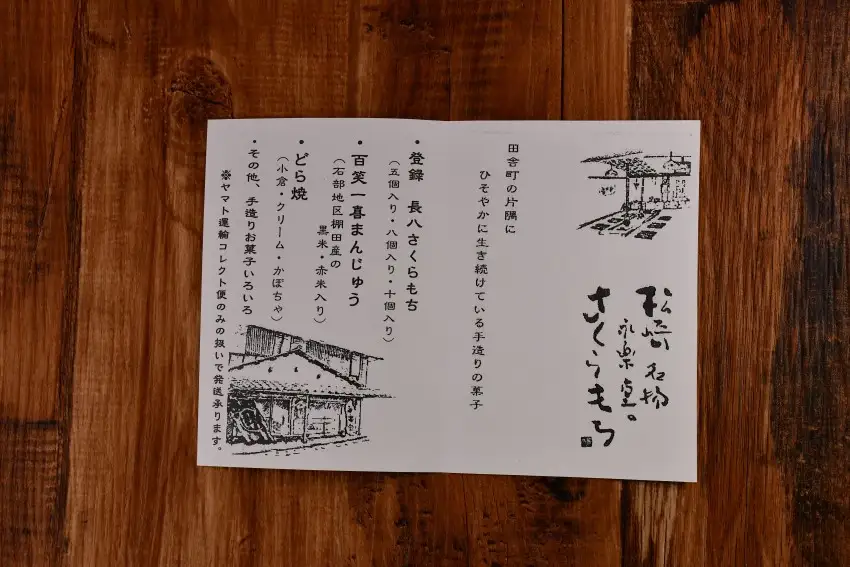 松崎名物
永楽堂。
さくらもち
田舎町の片隅に
ひそやかに生き続けている手造りの菓子
・登録 長八さくらもち
（五個入り・八個入り・十個入り）
・百笑一喜まんじゅう
（石部地区棚田産の
黒米・赤米入り）
・どら焼
（小倉・クリーム・かぼちゃ）
・その他、手造りお菓子いろいろ
※ヤマト運輸コレクト便のみの扱いで発送承ります。